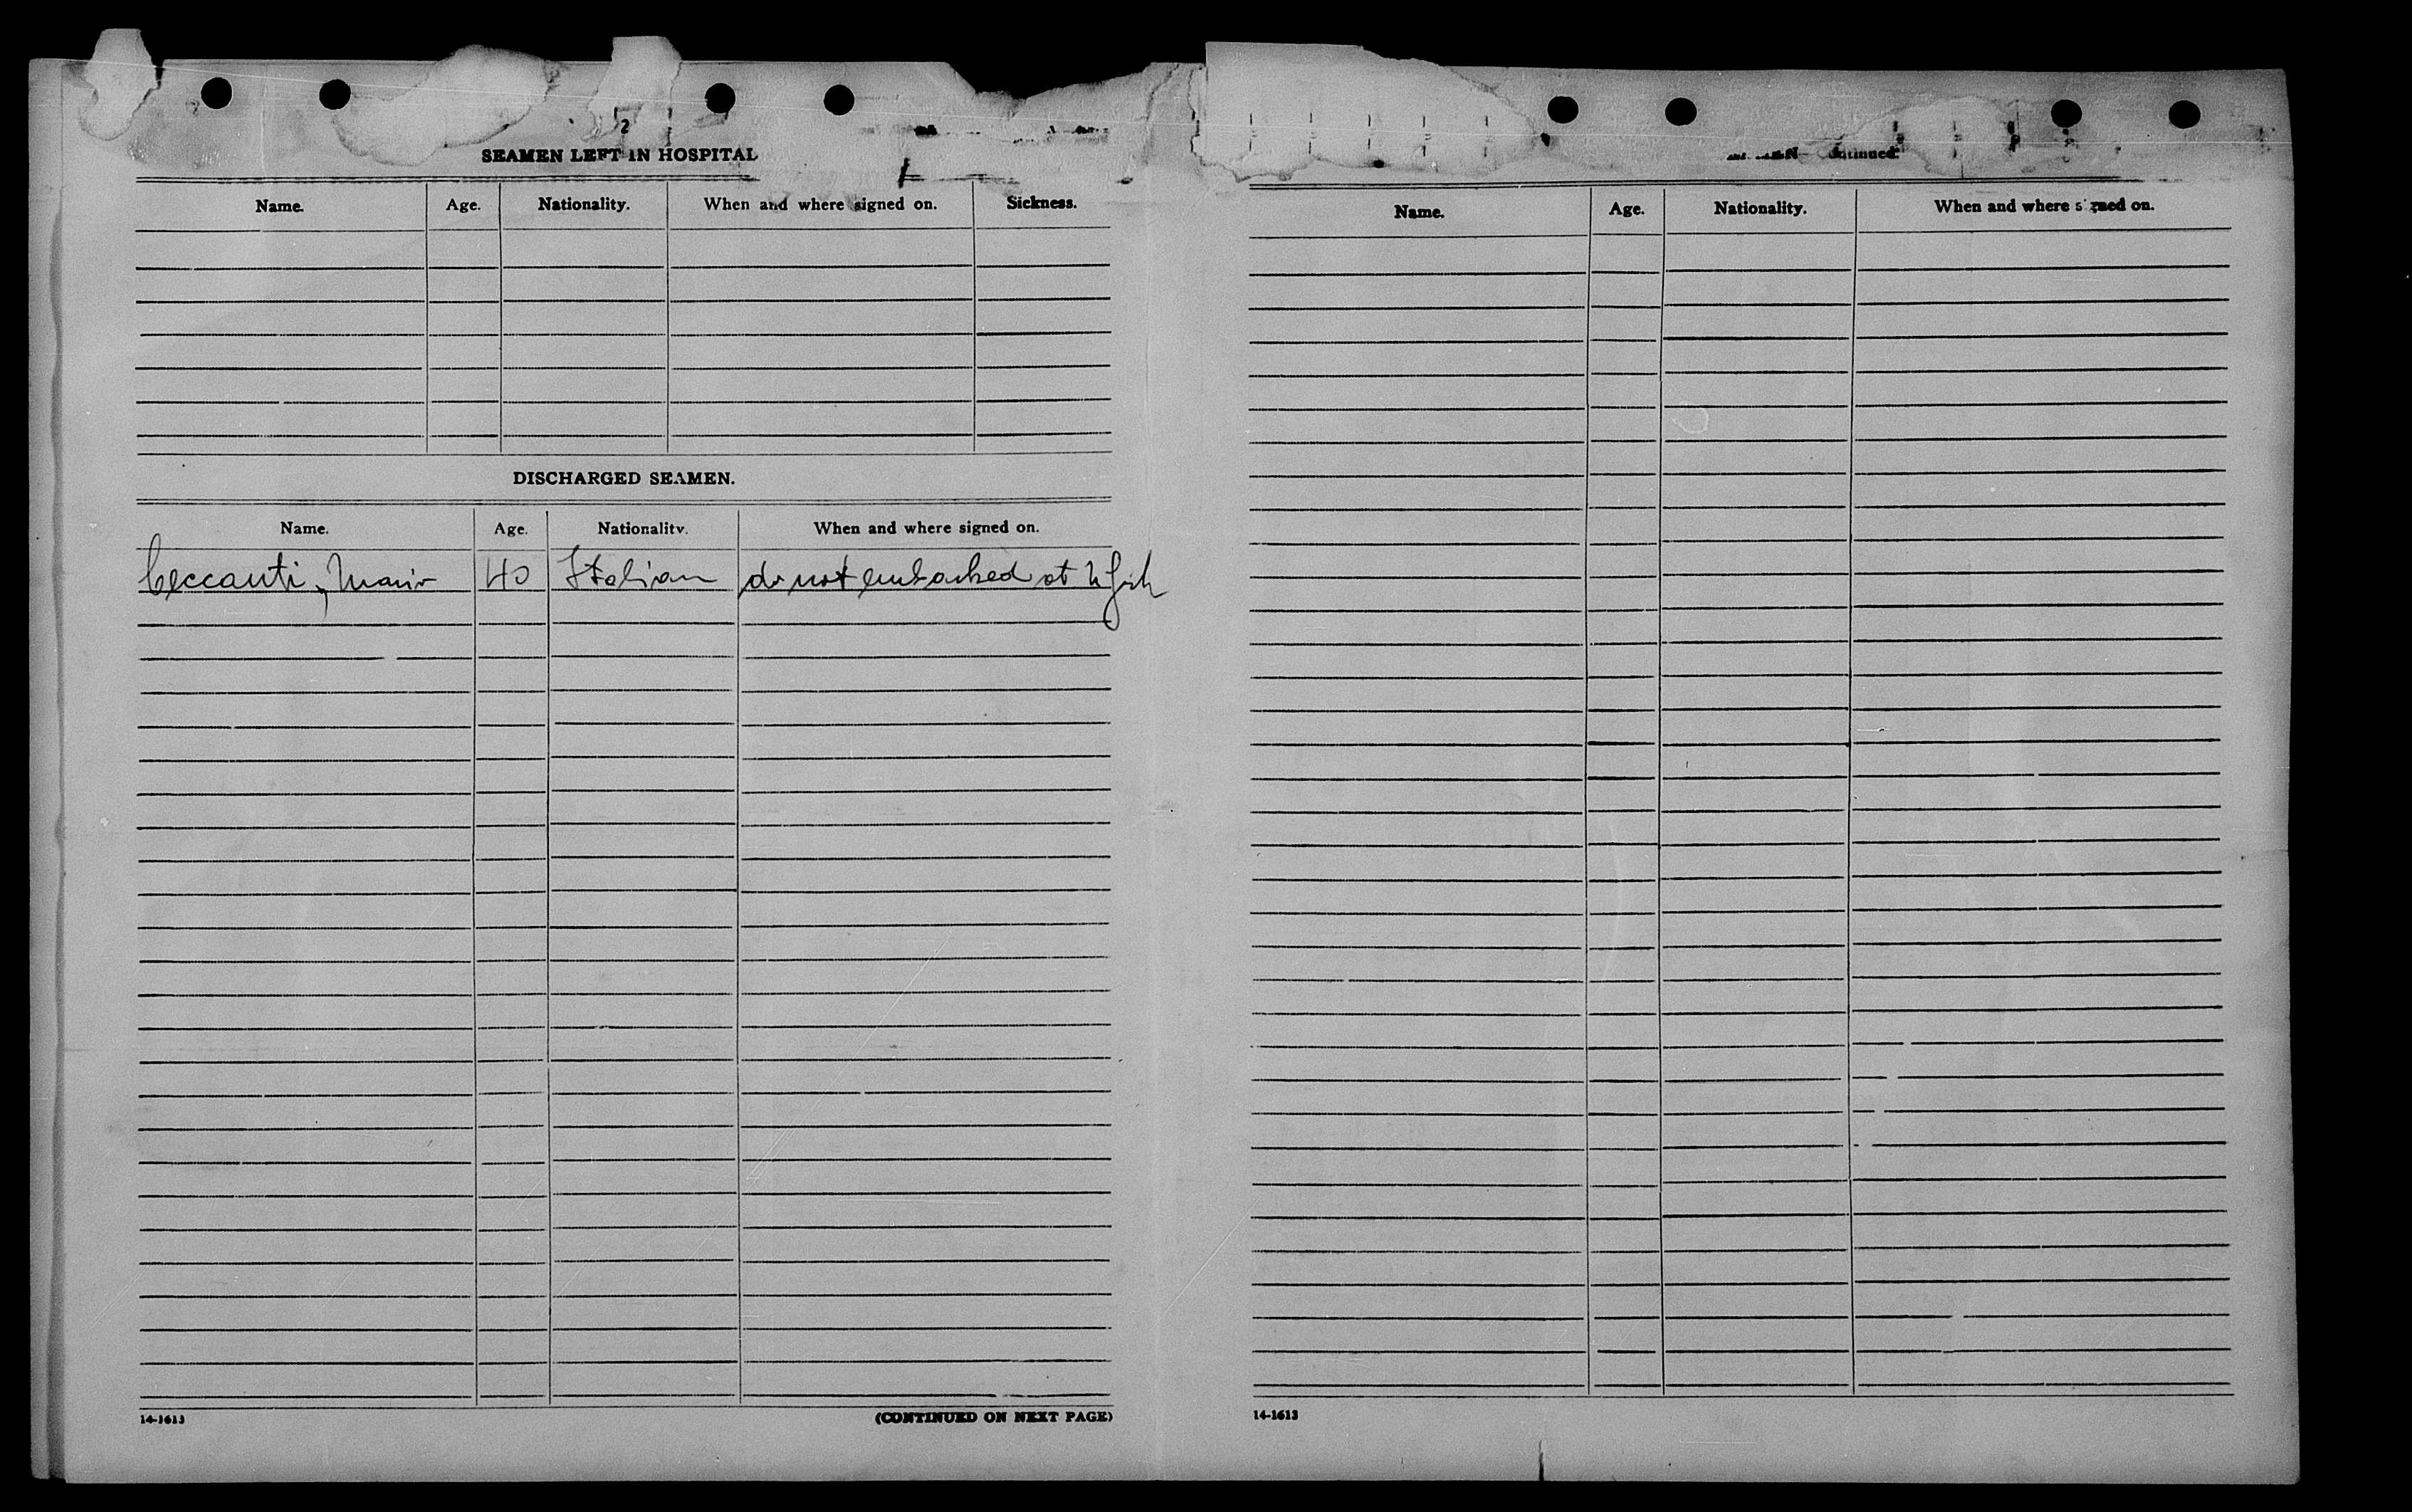 2
SEAMEN LEFT IN HOSPITAL
Name. Age. Nationality. When and where signed on. Sickness.
DISCHARGED SEAMEN.
Name. Age. Nationality. When and where signed on.
Ceccanti, Mario 40 Italian do not embarked at
14-1613 (CONTINUED ON NEXT PAGE)
Name. Age. Nationality. When and where signed on.
14-1613